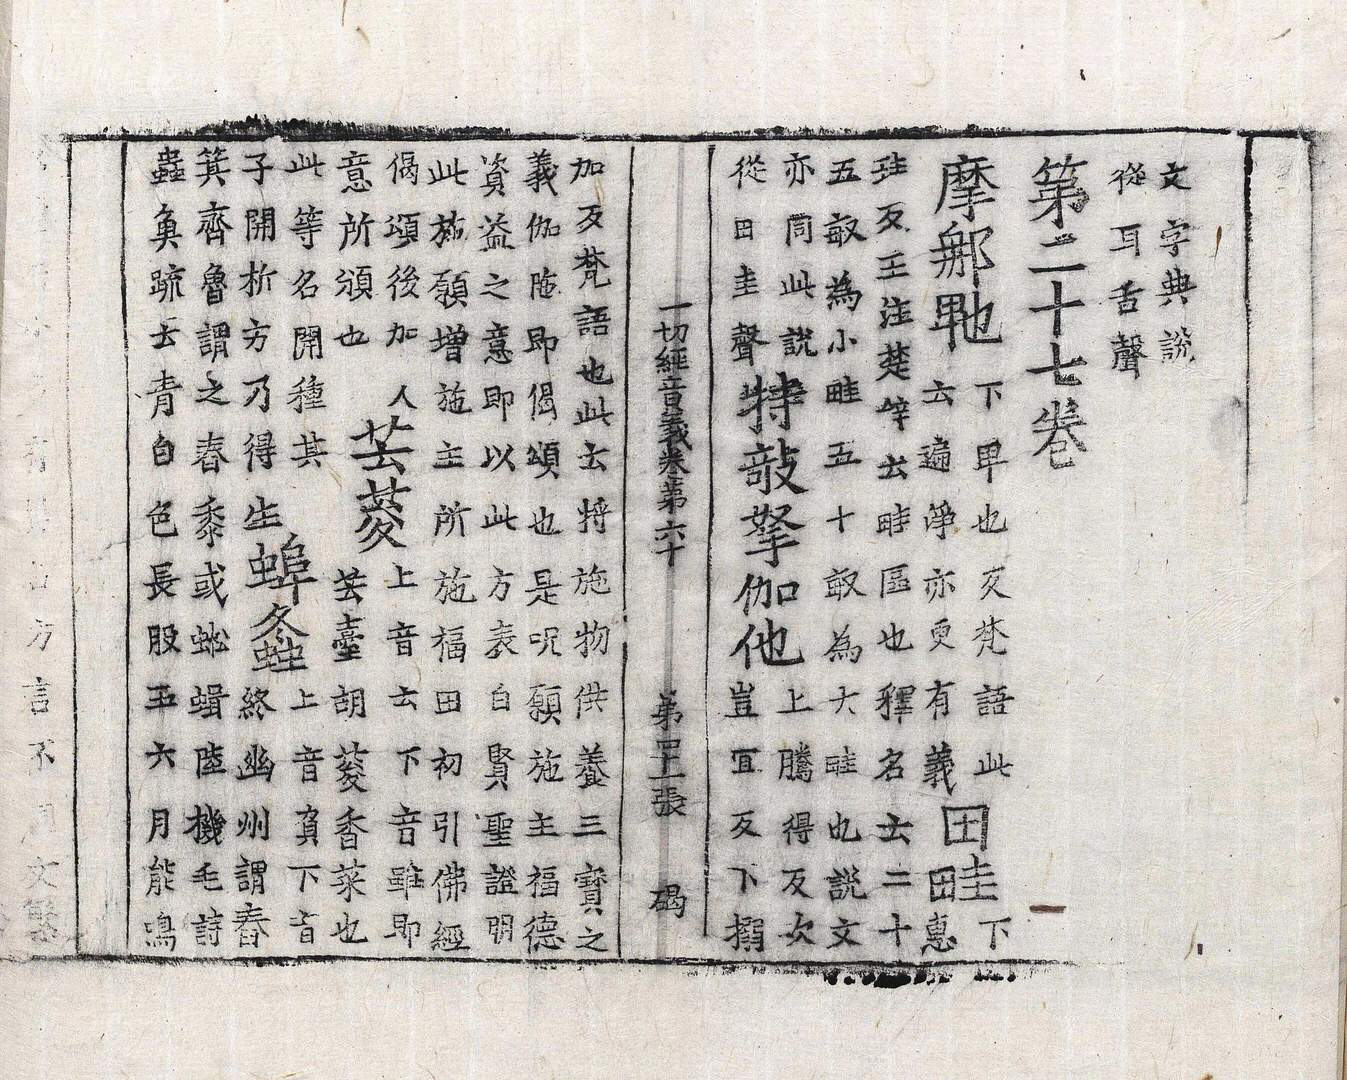 文字典說
從耳舌聲
第二十七卷
摩那𭺗 下卑也反梵語此
云遍淨亦更有義 田畦 下
田惠
珪反王注楚辝云畦區也釋名云二十
五畝為小畦五十畝為大畦也說文
亦同此說
從田圭聲 特敧拏伽他 上騰得反次
豈宜反下搦
一切經音義卷第六十 第四十一張 碣
加反梵語也此云将施物供養三寶之
義伽陁即偈頌也是呪願施主福德
資益之意即以此方表白賢聖證明
此施願增施主所施福田初引佛經
偈頌後加人
意所頒也 芸荾 上音云下音雖即
芸臺胡荾香菜也
此等名開種其
子開析方乃得生 蜯螽 上音負下音
終幽州謂舂
箕齊魯謂之舂黍或蚣蝑陸機毛詩
蟲魚疏云青白色長股五六月能鳴